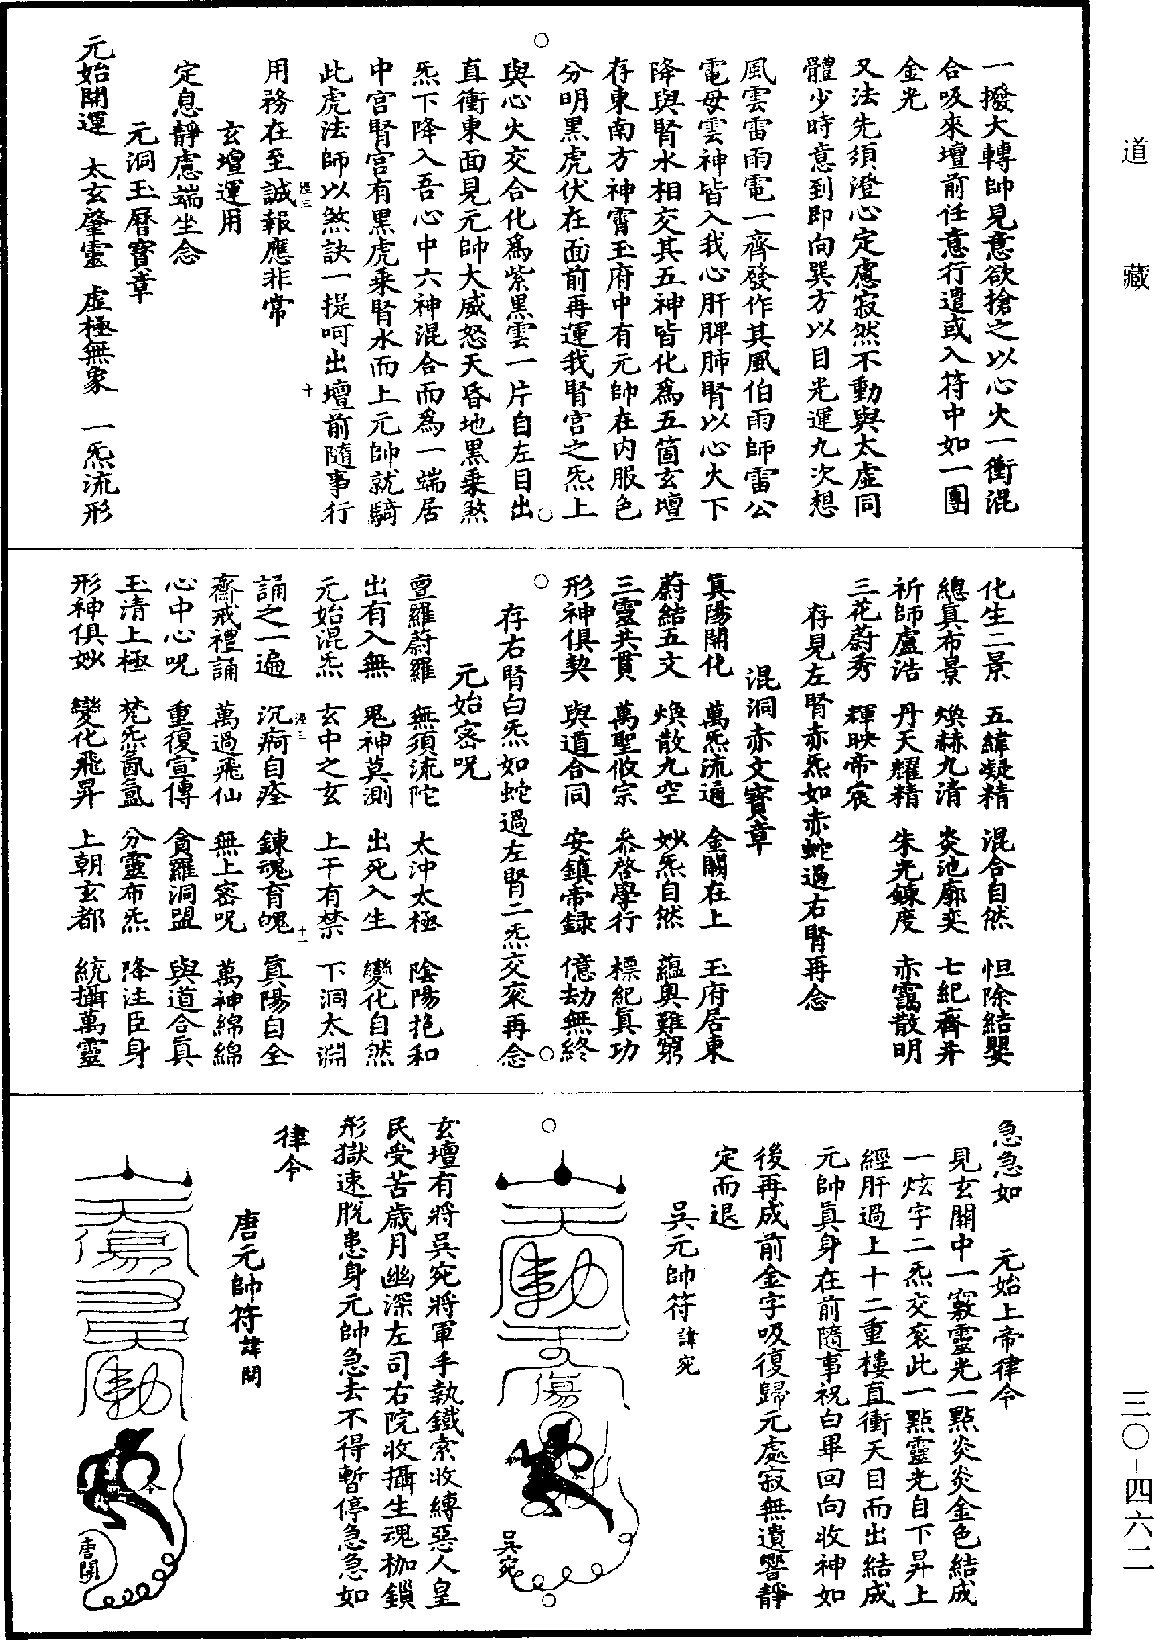 道藏
三〇-四六二
一撥大轉帥見意欲搶之以心火一衝混
合吸來壇前任意行遣或入符中如一團
金光
又法先須澄心定慮寂然不動與太虛同
體少時意到即向巽方以目光運九次想
風雲雷雨電一齊發作其風伯雨師雷公
電母雲神皆入我心肝脾肺腎以心火下
降與腎水相交其五神皆化爲五箇玄壇
存東南方神霄玉府中有元帥在內服色
分明黑虎伏在面前再運我腎宮之炁上
與心火交合化爲紫黑雲一片自左目出
直衝東面見元帥大威怒天昏地黑乘煞
炁下降入吾心中六神混合而爲一端居
中宮腎宮有黑虎乘腎水而上元帥就騎
此虎法師以煞訣一提呵出壇前隨事行
用務在至誠報應非常
玄壇運用
定息靜慮端坐念
元洞玉曆寶章
元始開運　太玄肇靈　虛極無象　一炁流形
化生二景　五緯凝精　混合自然　怛除結嬰
總真布景　煥赫九清　炎池廓奕　七紀齊并
祈師盧浩　丹天耀精　朱光鍊度　赤靄散明
三花蔚秀　輝映帝宸
存見左腎赤炁如赤蛇過右腎再念
混洞赤文寶章
真陽開化　萬炁流通　金闕在上　玉府居東
蔚結五文　煥散九空　妙炁自然　蘊奧難窮
三靈共貫　萬聖攸宗　參啓學行　標紀真功
形神俱契　與道合同　安鎮帝錄　億劫無終
存右腎白炁如蛇過左腎二炁交衮再念
元始密呪
亶羅蔚羅　無須流陀　太沖太極　陰陽抱和
出有入無　鬼神莫測　出死入生　變化自然
元始混炁　玄中之玄　上干有禁　下洞太淵
誦之一遍　沉痾自痊　鍊魂育魄　真陽自全
齋戒禮誦　萬過飛仙　無上密呪　萬神綿綿
心中心呪　重復宣傳　貪羅洞盟　與道合真
玉清上極　梵炁氤氳　分靈布炁　降注臣身
形神俱妙　變化飛昇　上朝玄都　統攝萬靈
急急如　元始上帝律令
見玄關中一竅靈光一點炎炎金色結成
一炫字二炁交衮此一點靈光自下昇上
經肝過上十二重樓直衝天目而出結成
元帥真身在前隨事祝白畢回向收神如
後再成前金字吸復歸元處寂無遺響靜
定而退
吳元帥符諱宛
吳宛
玄壇有將吳宛將軍手執鐵索收縛惡人皇
民受苦歲月幽深左司右院收攝生魂枷鎖
形獄速脫患身元帥急去不得暫停急急如
律令
唐元帥符諱開
唐開